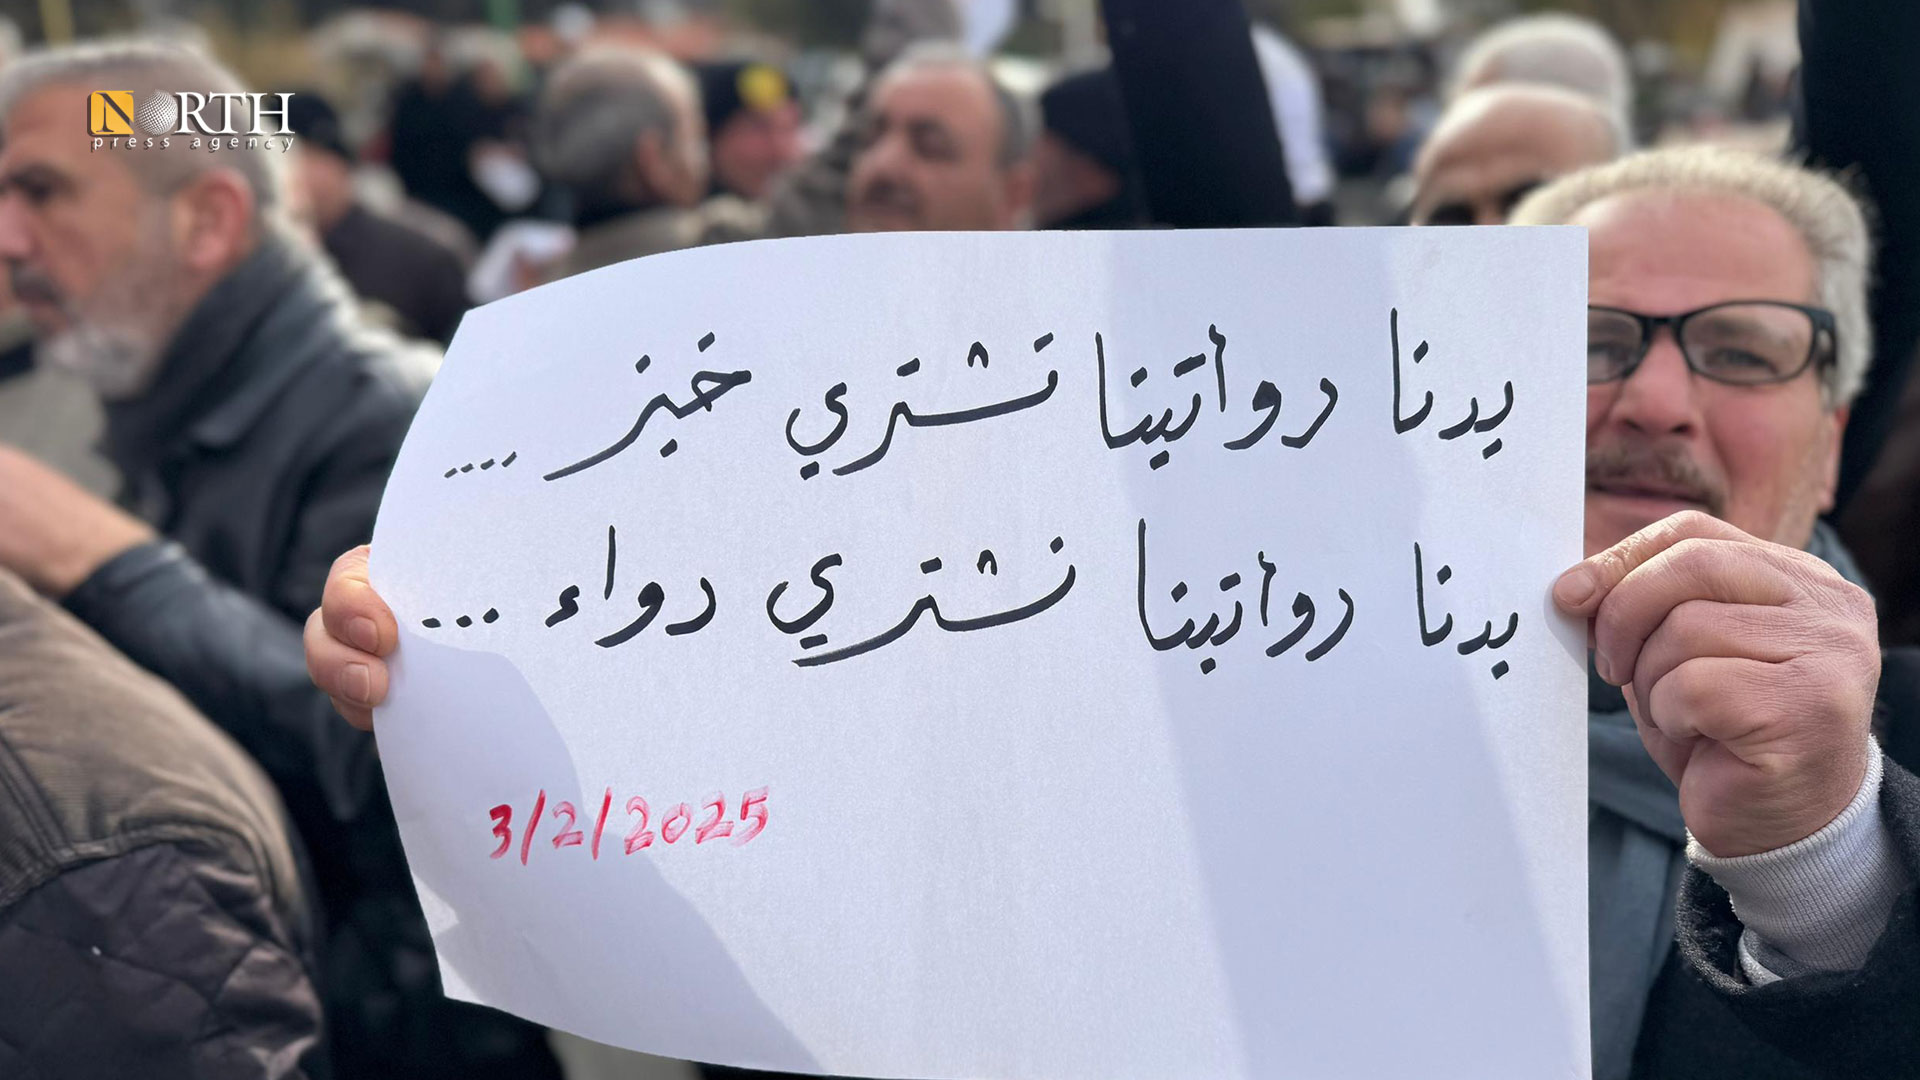 NORTH
press agency
بدنا رواتبنا نشتري خبز ....
بدنا رواتبنا نشتري دواء ...
3/2/2025